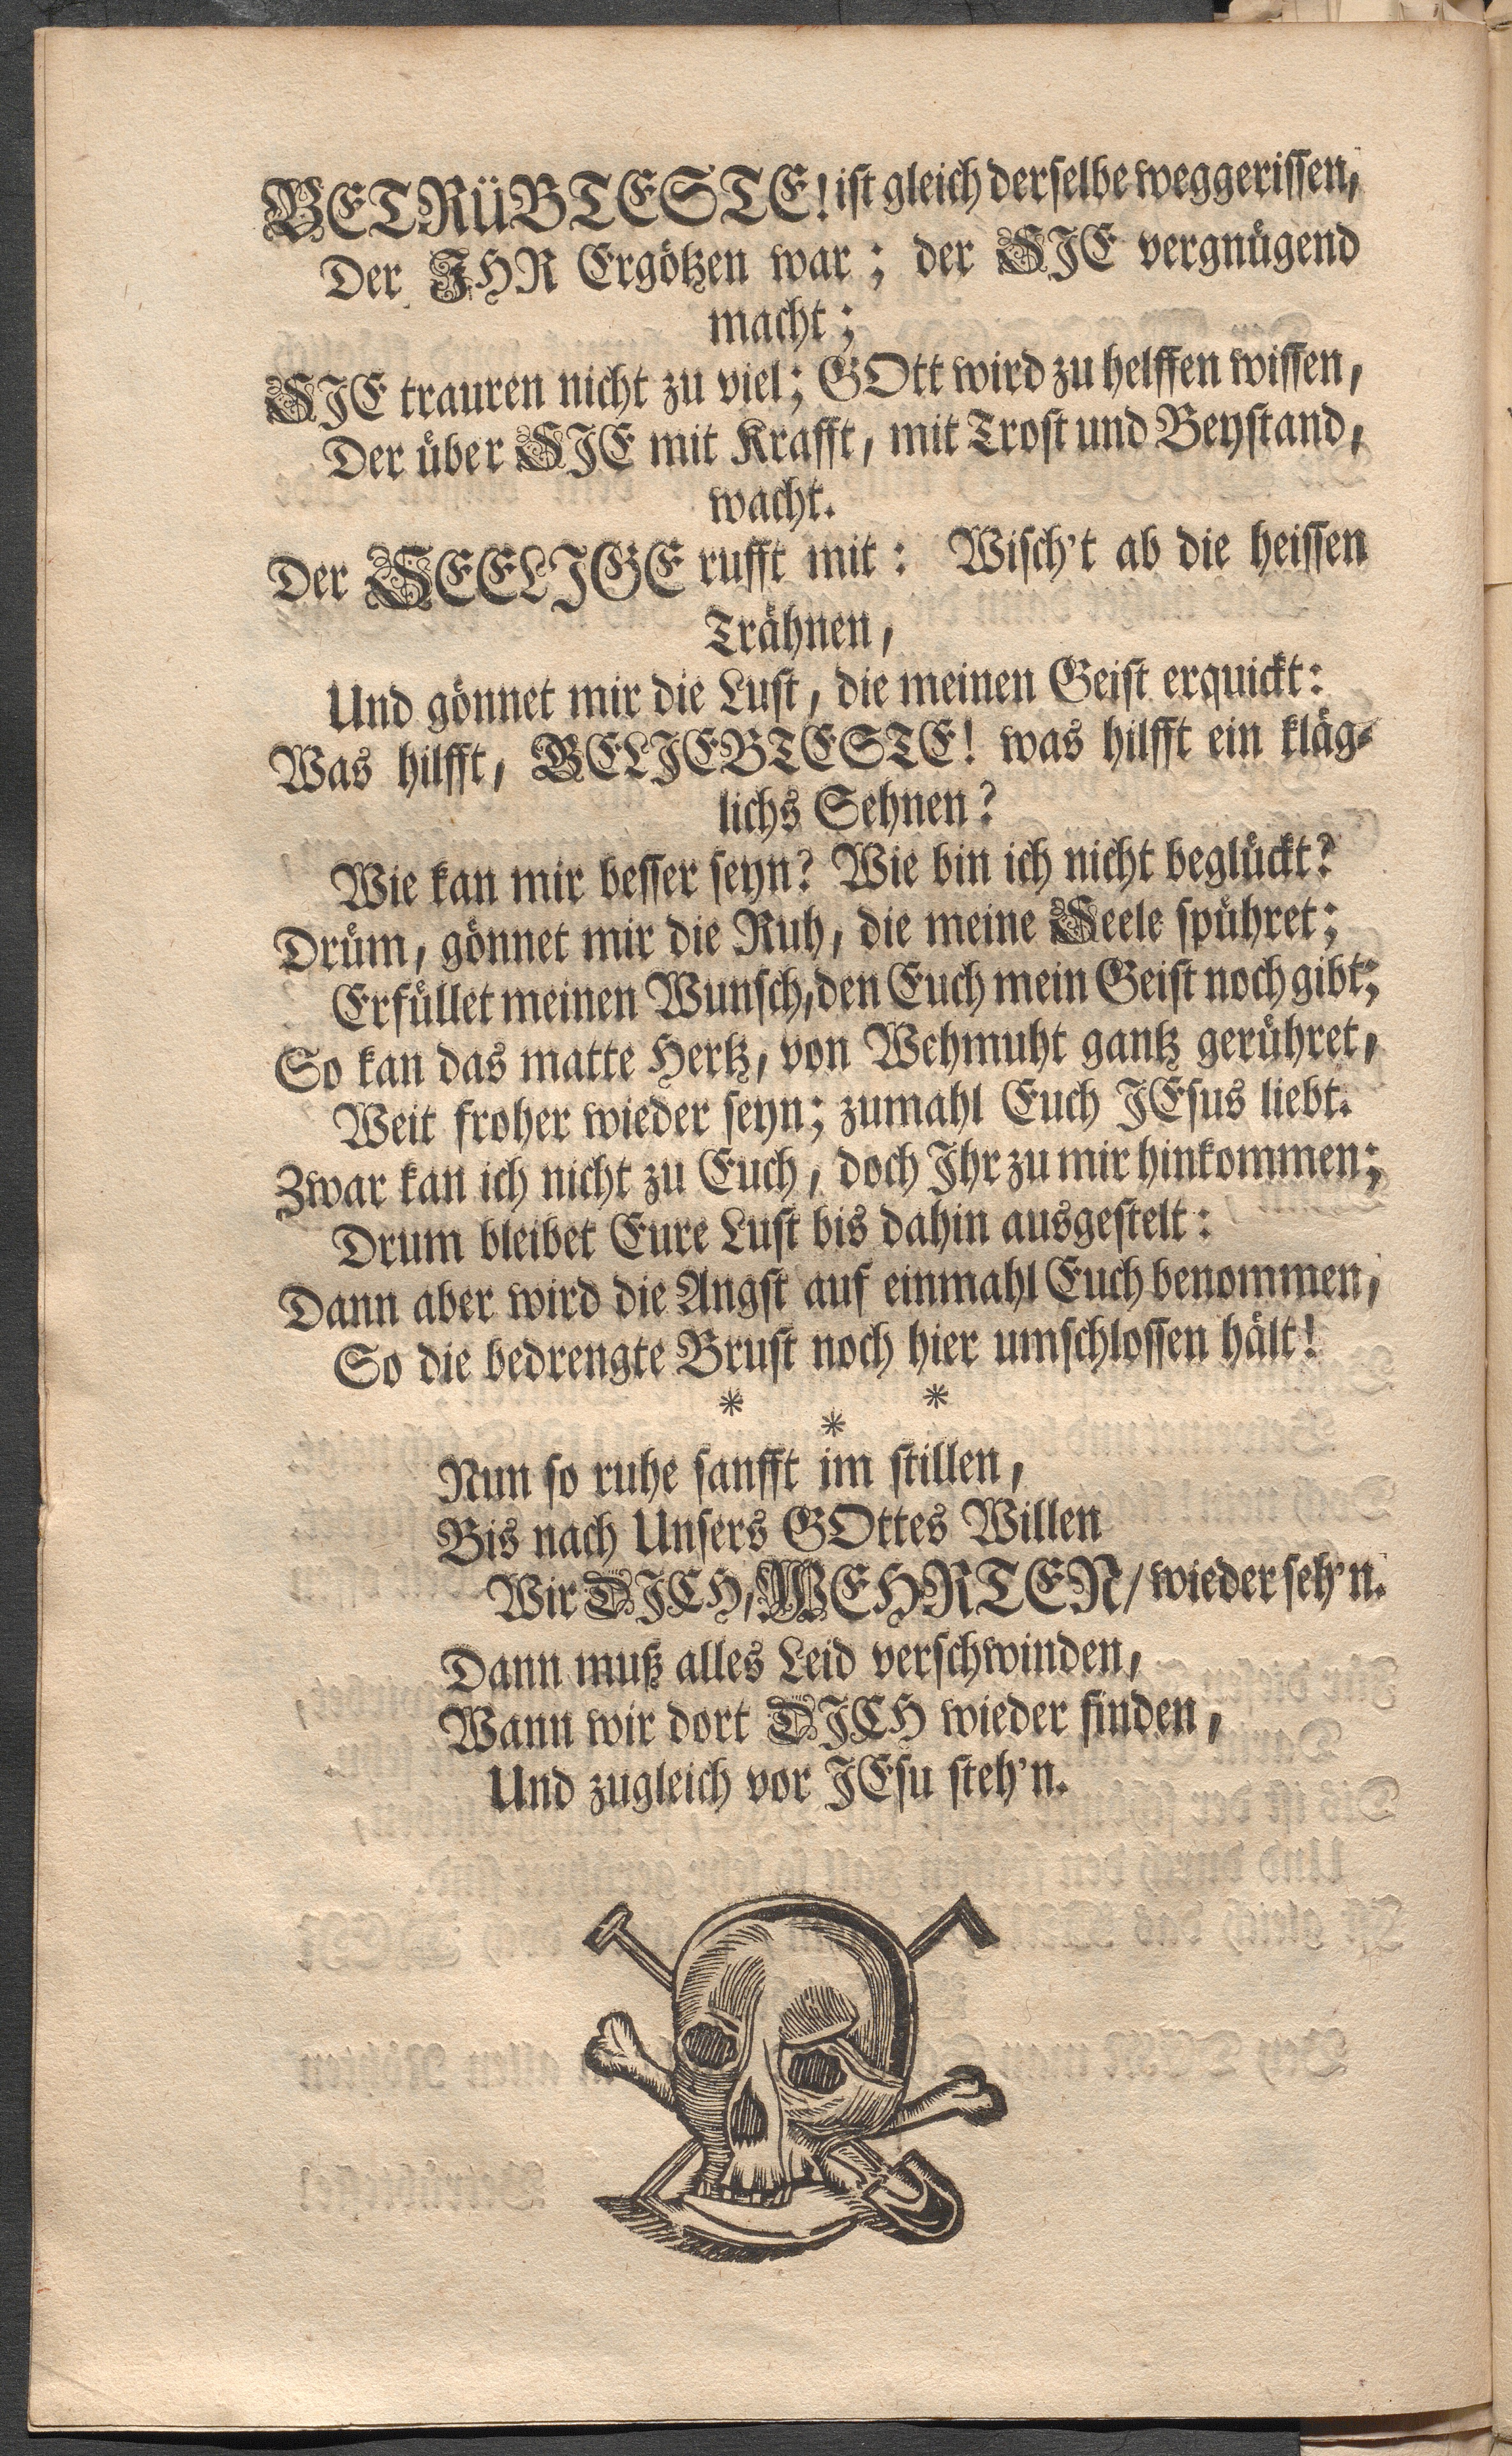 BETRüBTESTE! ist gleich derselbe weggerissen,
Der IHR Ergötzen war; der SIE vergnügend
macht;
SIE trauren nicht zu viel; GOtt wird zu helffen wissen,
Der über SIE mit Krafft, mit Trost und Beystand,
wacht.
Der SEELIGE rufft mit: Wisch't ab die heissen
Trähnen,
Und gönnet mir die Lust, die meinen Geist erquickt:
Was hilfft, BELIEBTESTE! was hilfft ein kläg-
lichs Sehnen?
Wie kan mir besser seyn? Wie bin ich nicht beglückt?
Drüm, gönnet mir die Ruh, die meine Seele spühret;
Erfüllet meinen Wunsch, den Euch mein Geist noch gibt;
So kan das matte Hertz, von Wehmuht gantz gerühret,
Weit froher wieder seyn; zumahl Euch JEsus liebt.
Zwar kan ich nicht zu Euch, doch Ihr zu mir hinkommen;
Drum bleibet Eure Lust bis dahin ausgestelt:
Dann aber wird die Angst auf einmahl Euch benommen,
So die bedrengte Brust noch hier umschlossen hält!
* * *
Nun so ruhe sanfft im stillen,
Bis nach Unsers GOttes Willen
Wir DICH, WEHRTEN/ wieder seh'n.
Dann muß alles Leid verschwinden,
Wann wir dort DICH wieder finden,
Und zugleich vor JEsu steh'n.